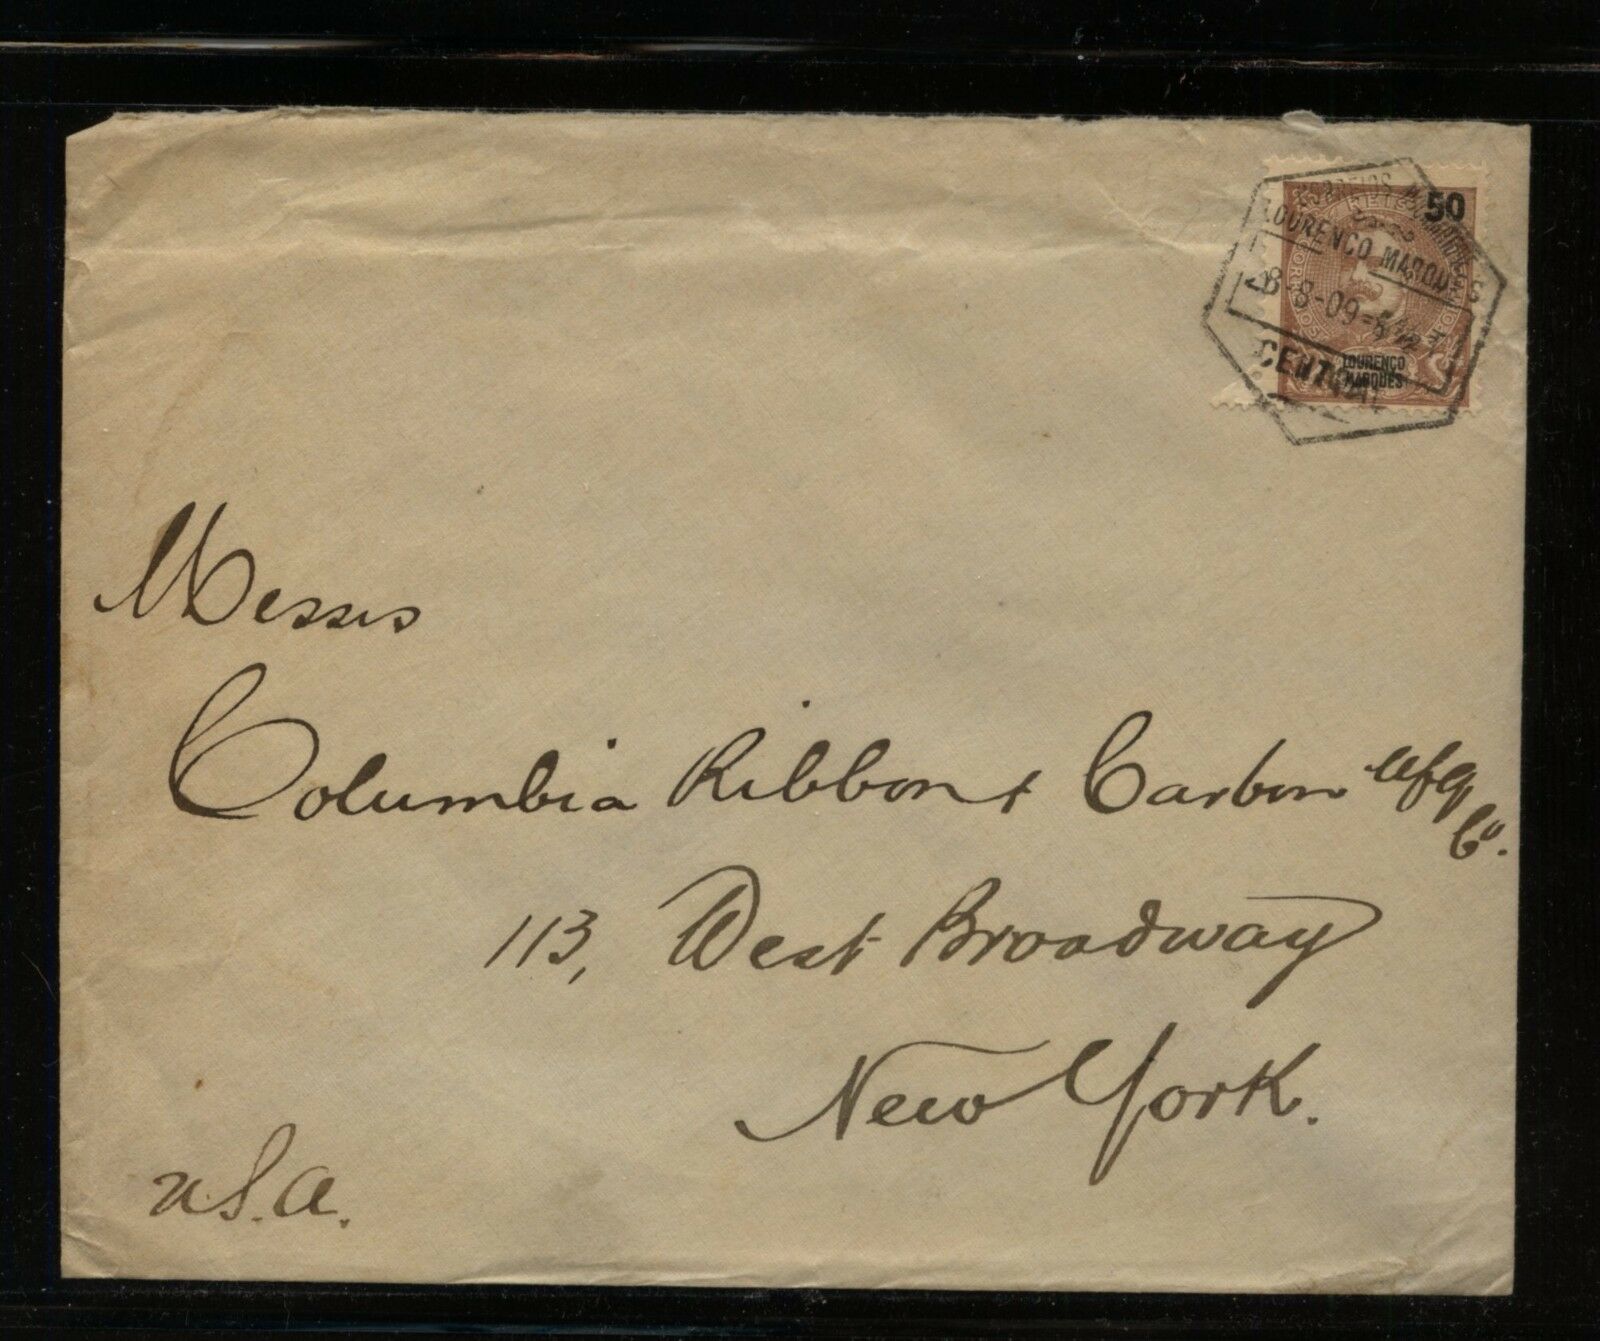 50
REIS
CORREIOS MOÇAMBIQUE
LOURENCO MARQUES
28-8-09
CENTRAL
LOURENCO
MARQUES
Messrs
Columbia Ribbon & Carbon Mfg
Co.
113, West Broadway
New York.
U.S.A.